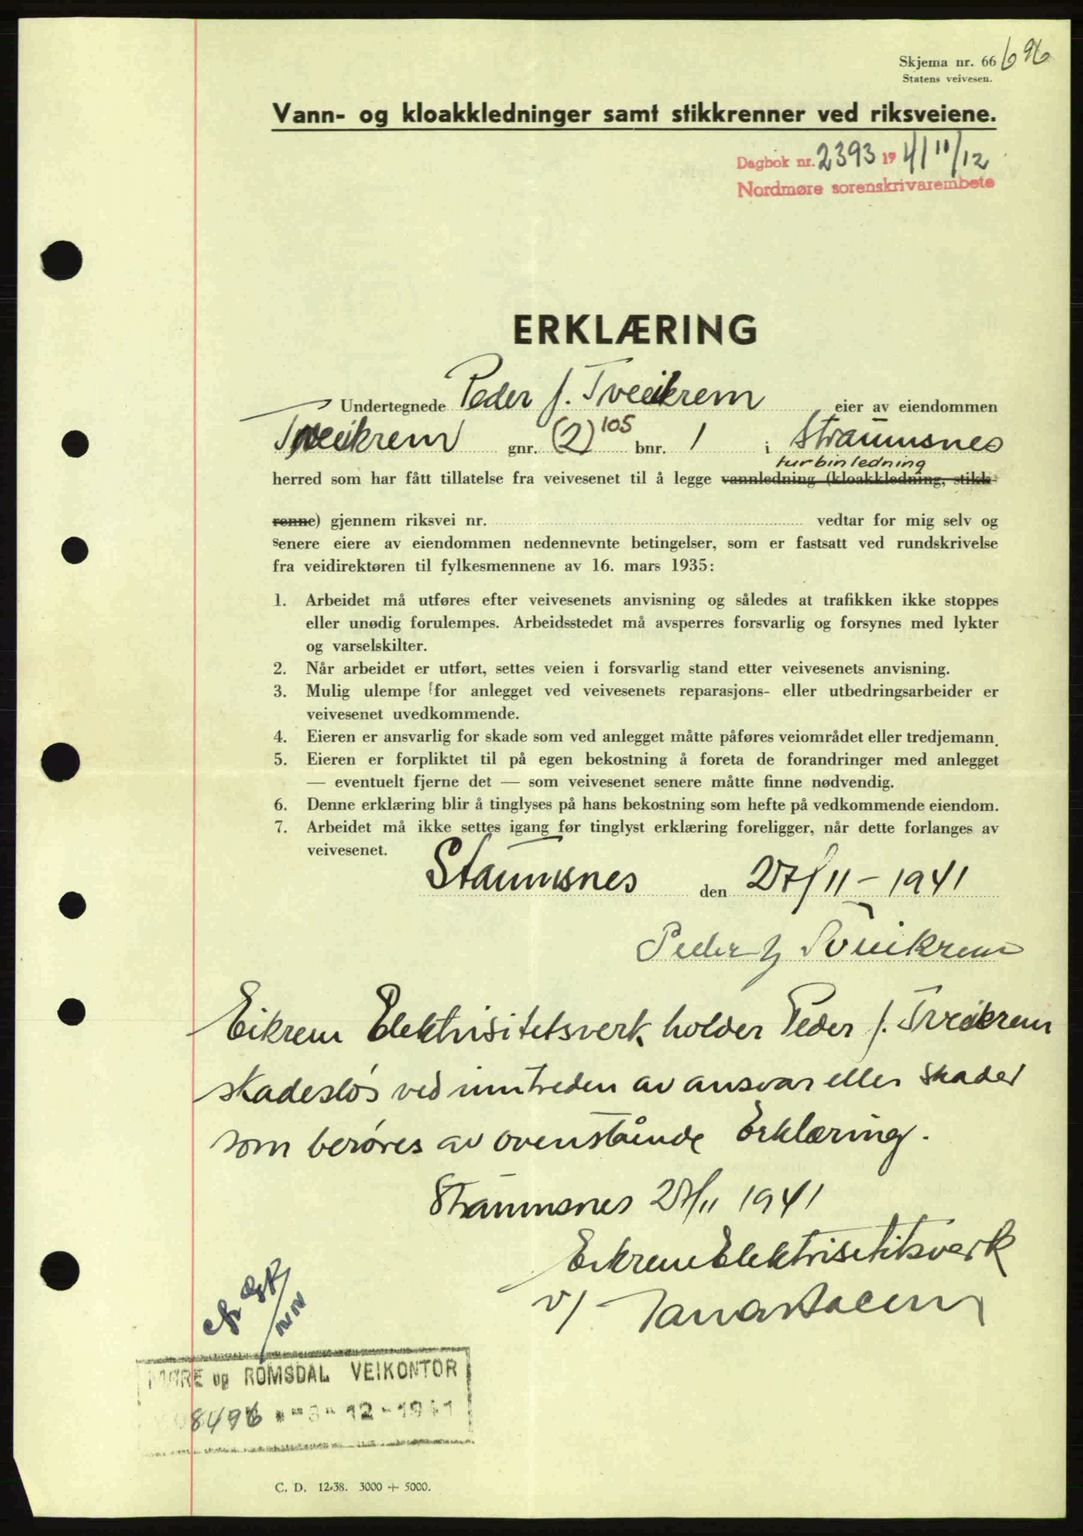 Skjema nr. 66 696
Statens veivesen.
Vann- og kloakkledninger samt stikkrenner ved riksveiene.
Dagbok nr. 2393 1941 11/12
Nordmøre sorenskrivarembete
ERKLÆRING
Undertegnede Peder J. Tveekrem eier av eiendommen
Tveikrem gnr. (2) 105 bnr. 1 i Straumsnes
turbinledning
herred som har fått tillatelse fra veivesenet til å legge vannledning (kloakkledning, stikk-
renne) gjennem riksvei nr. vedtar for mig selv og
senere eiere av eiendommen nedennevnte betingelser, som er fastsatt ved rundskrivelse
fra veidirektøren til fylkesmennene av 16. mars 1935:
1. Arbeidet må utføres efter veivesenets anvisning og således at trafikken ikke stoppes
eller unødig forulempes. Arbeidsstedet må avsperres forsvarlig og forsynes med lykter
og varselskilter.
2. Når arbeidet er utført, settes veien i forsvarlig stand etter veivesenets anvisning.
3. Mulig ulempe for anlegget ved veivesenets reparasjons- eller utbedringsarbeider er
veivesenet uvedkommende.
4. Eieren er ansvarlig for skade som ved anlegget måtte påføres veiområdet eller tredjemann.
5. Eieren er forpliktet til på egen bekostning å foreta de forandringer med anlegget
— eventuelt fjerne det — som veivesenet senere måtte finne nødvendig.
6. Denne erklæring blir å tinglyses på hans bekostning som hefte på vedkommende eiendom.
7. Arbeidet må ikke settes igang før tinglyst erklæring foreligger, når dette forlanges av
veivesenet.
Staumsnes den 27/11-1941
Peder J Tveikrem
Eikrem Elektrisitetsverk holder Peder J. Tveikrem
skadesløs ved inntreden av ansvar eller skader
som berøres av ovenstående Erklæring.
Straumsnes 27/11 1941
Eikrem Elektrisitetsverk
v/
MØRE og ROMSDAL VEIKONTOR
8496 -3-12-1941
C. D. 12-38. 3000 + 5000.